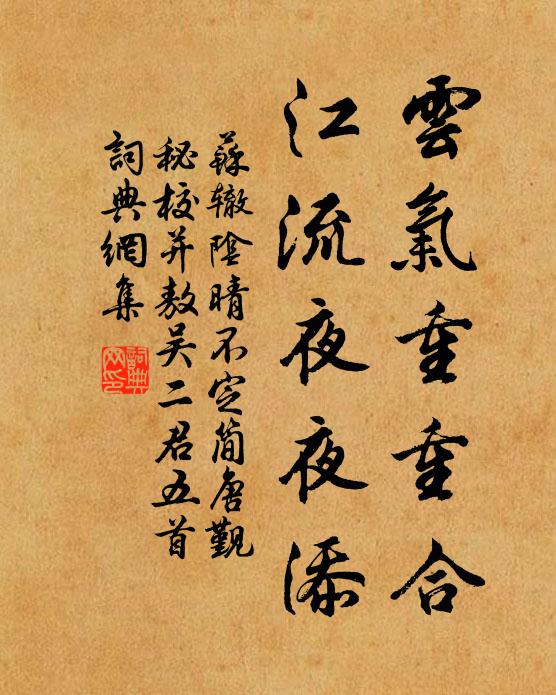 雲氣重重合
江流夜夜添
蘇轍陰晴不定簡唐覲
秘校并敖吴二君五首
詞典網集
詞典
网印